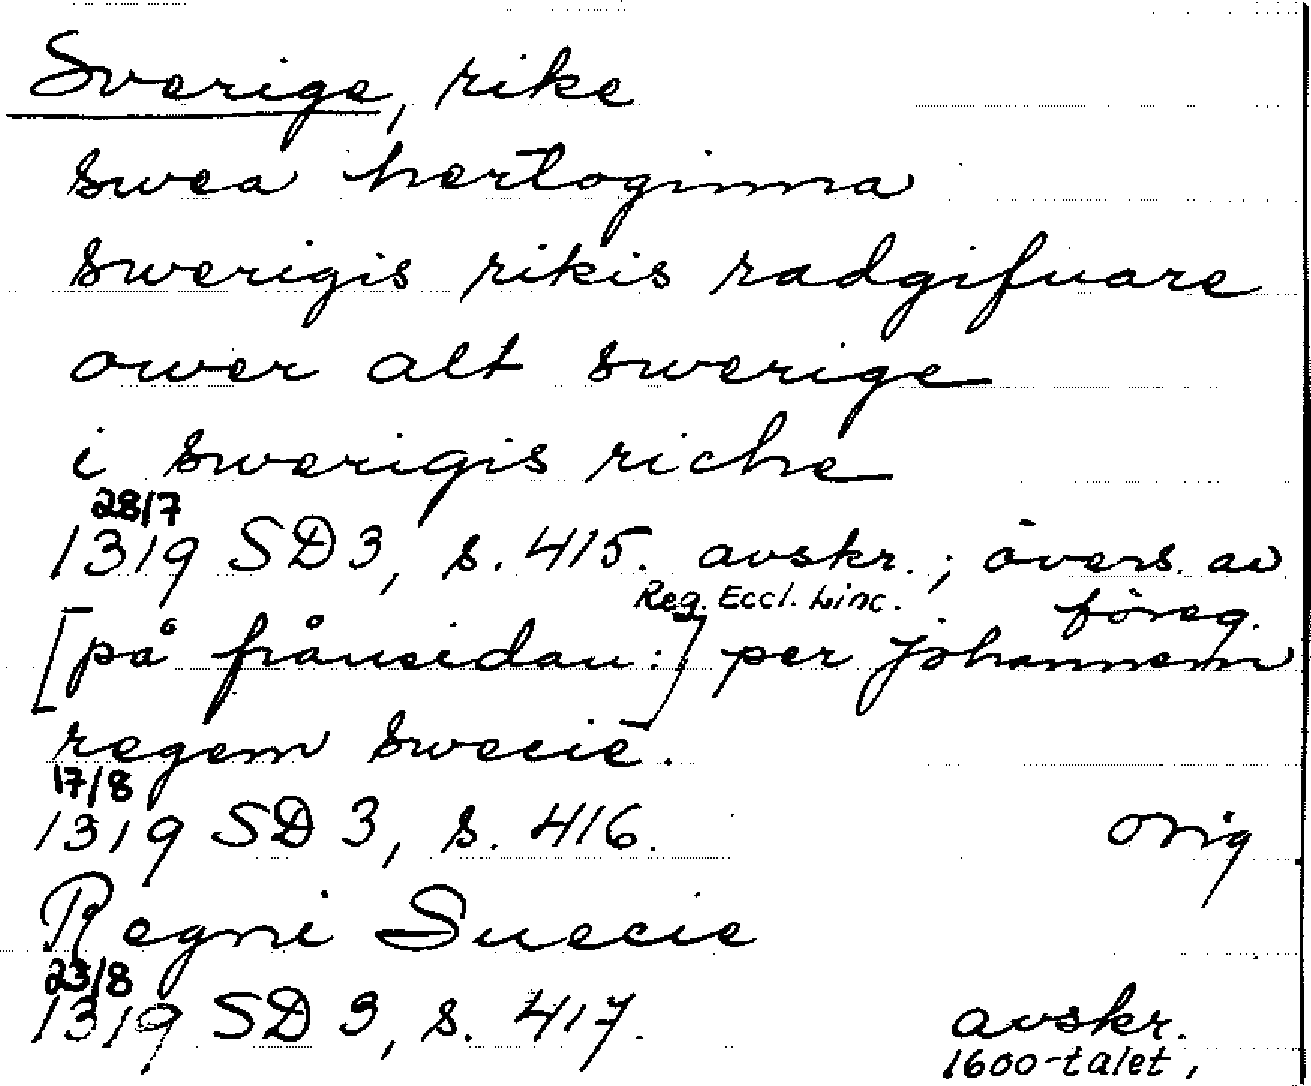 Sverige, rike
swea hertoginna
swerigis rikis radgifuare
ower alt swerige
i swerigis riche
28/7
1319 SD 3, s. 415. avskr. ; övers. av föreg.
Reg. Eccl. Linc.
[på frånsidan:] per johannem
regem swecie.
17/8
1319 SD 3, s. 416. orig
Regni Suecie
23/8
1319 SD 3, s. 417. avskr.
1600-talet,